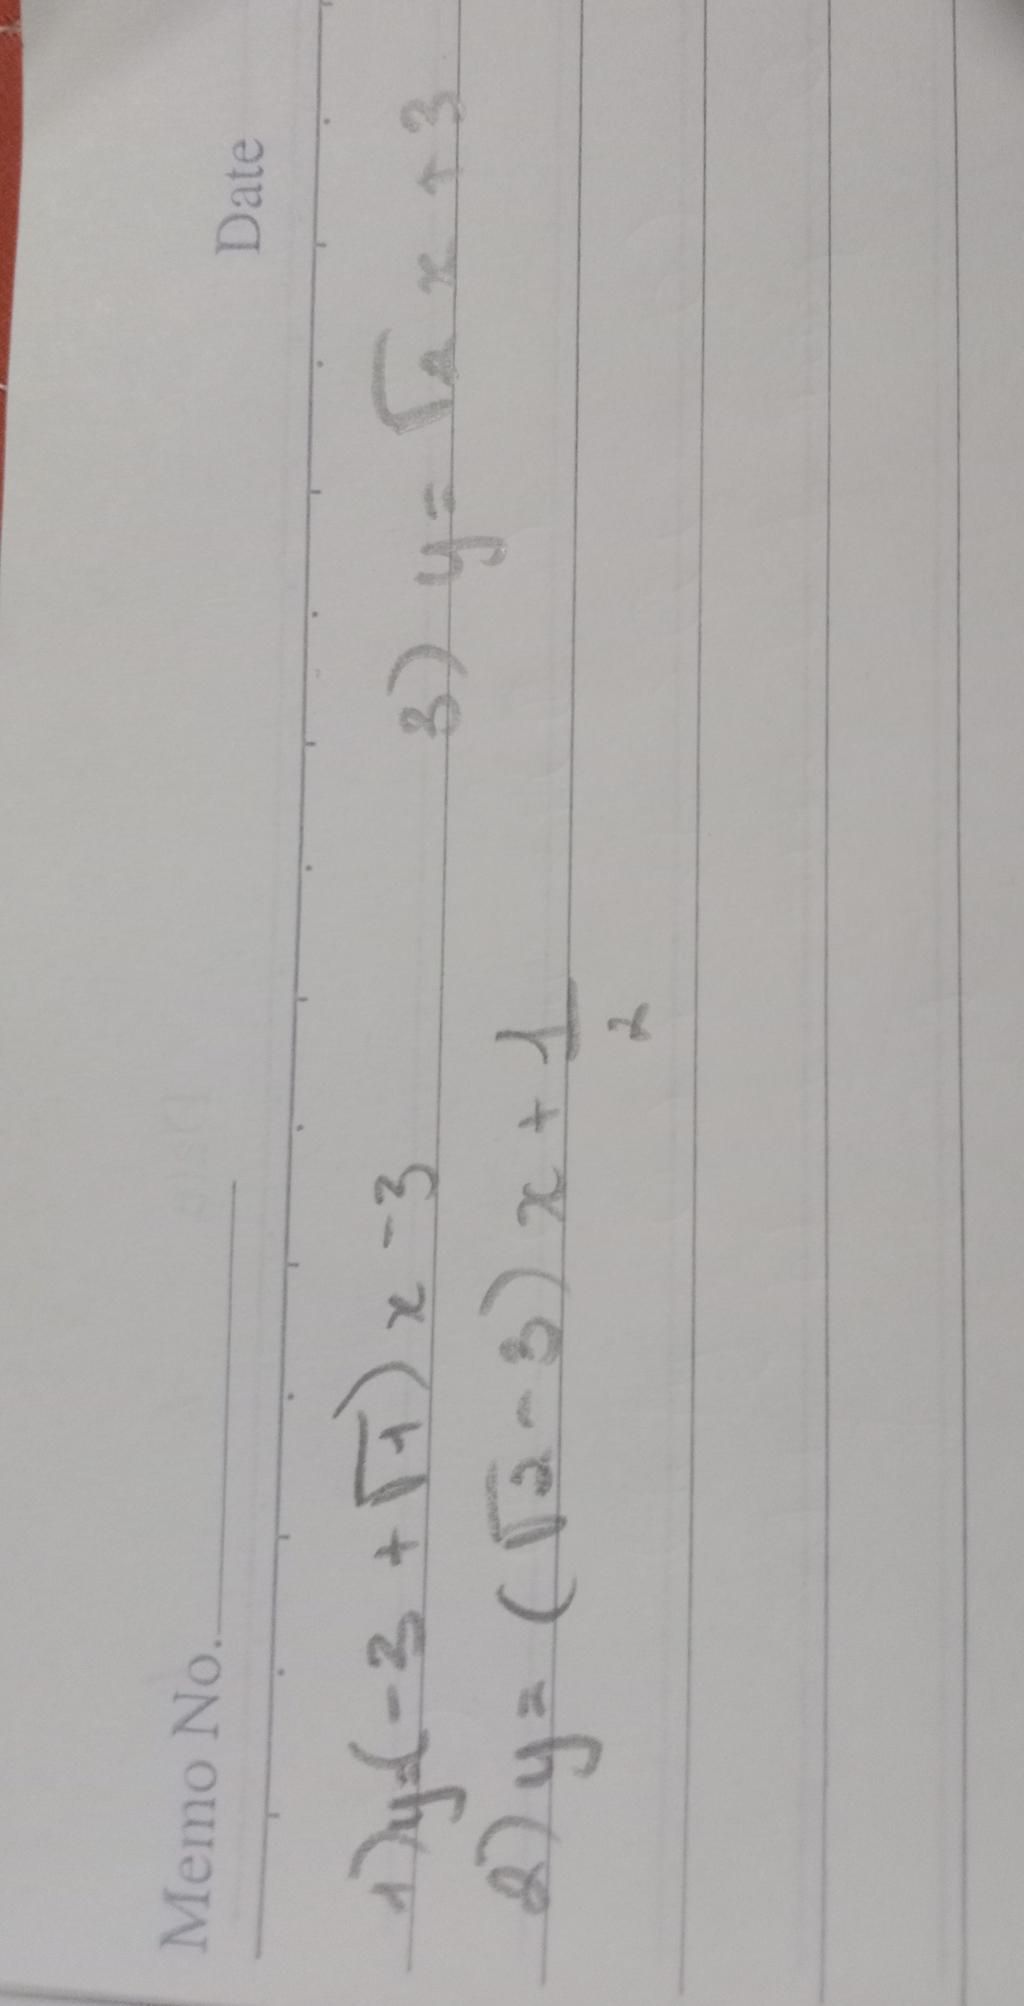 Memo No. Date
1) y=(-3 + √1) x -3 3) y = √2 x + 3
2) y = (√2 - 3) x + 1/2